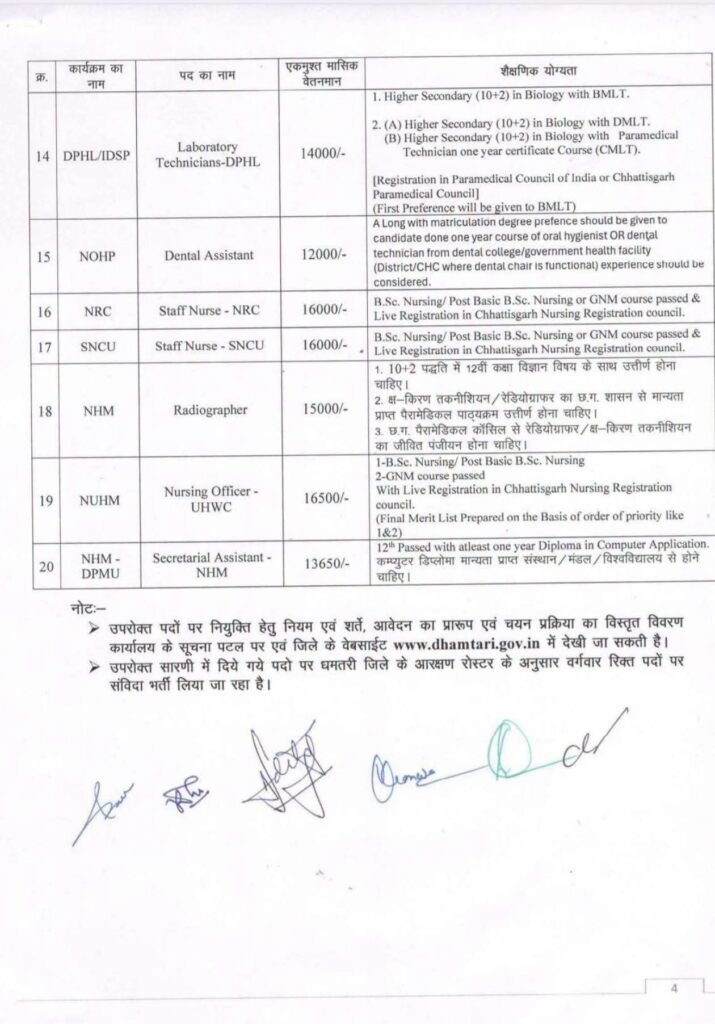 क्र.
कार्यक्रम का
नाम
पद का नाम
एकमुश्त मासिक
वेतनमान
शैक्षणिक योग्यता
14
DPHL/IDSP
Laboratory
Technicians-DPHL
14000/-
1. Higher Secondary (10+2) in Biology with BMLT.
2. (A) Higher Secondary (10+2) in Biology with DMLT.
(B) Higher Secondary (10+2) in Biology with Paramedical
Technician one year certificate Course (CMLT).
[Registration in Paramedical Council of India or Chhattisgarh
Paramedical Council]
(First Preference will be given to BMLT)
15
NOHP
Dental Assistant
12000/-
A Long with matriculation degree prefence should be given to
candidate done one year course of oral hygienist OR dental
technician from dental college/government health facility
(District/CHC where dental chair is functional) experience should be
considered.
16
NRC
Staff Nurse - NRC
16000/-
B.Sc. Nursing/ Post Basic B.Sc. Nursing or GNM course passed &
Live Registration in Chhattisgarh Nursing Registration council.
17
SNCU
Staff Nurse - SNCU
16000/-
B.Sc. Nursing/ Post Basic B.Sc. Nursing or GNM course passed &
Live Registration in Chhattisgarh Nursing Registration council.
18
NHM
Radiographer
15000/-
1. 10+2 पद्धति में 12वीं कक्षा विज्ञान विषय के साथ उत्तीर्ण होना
चाहिए।
2. क्ष–किरण तकनीशियन/रेडियोग्राफर का छ.ग. शासन से मान्यता
प्राप्त पैरामेडिकल पाठ्यक्रम उत्तीर्ण होना चाहिए।
3. छ.ग. पैरामेडिकल कौंसिल से रेडियोग्राफर/क्ष–किरण तकनीशियन
का जीवित पंजीयन होना चाहिए।
19
NUHM
Nursing Officer -
UHWC
16500/-
1-B.Sc. Nursing/ Post Basic B.Sc. Nursing
2-GNM course passed
With Live Registration in Chhattisgarh Nursing Registration
council.
(Final Merit List Prepared on the Basis of order of priority like
1&2)
20
NHM -
DPMU
Secretarial Assistant -
NHM
13650/-
12th Passed with atleast one year Diploma in Computer Application.
कम्प्युटर डिप्लोमा मान्यता प्राप्त संस्थान/मंडल/विश्वविद्यालय से होने
चाहिए।
नोटः–
➢ उपरोक्त पदों पर नियुक्ति हेतु नियम एवं शर्ते, आवेदन का प्रारूप एवं चयन प्रक्रिया का विस्तृत विवरण
कार्यालय के सूचना पटल पर एवं जिले के वेबसाईट www.dhamtari.gov.in में देखी जा सकती है।
➢ उपरोक्त सारणी में दिये गये पदो पर धमतरी जिले के आरक्षण रोस्टर के अनुसार वर्गवार रिक्त पदों पर
संविदा भर्ती लिया जा रहा है।
4